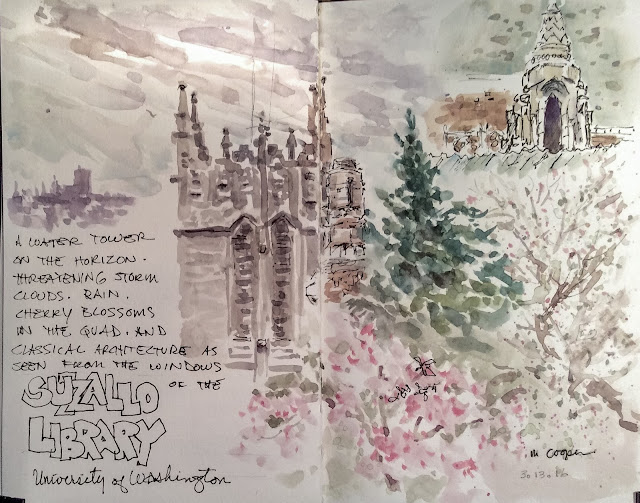 A WATER TOWER
ON THE HORIZON.
THREATENING STORM
CLOUDS. RAIN.
CHERRY BLOSSOMS
IN THE QUAD. AND
CLASSICAL ARCHITECTURE AS
SEEN FROM THE WINDOWS
OF THE
SUZZALLO
LIBRARY
University of Washington
M Cooper
3.13.16